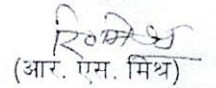 (आर. एस. मिश्र)